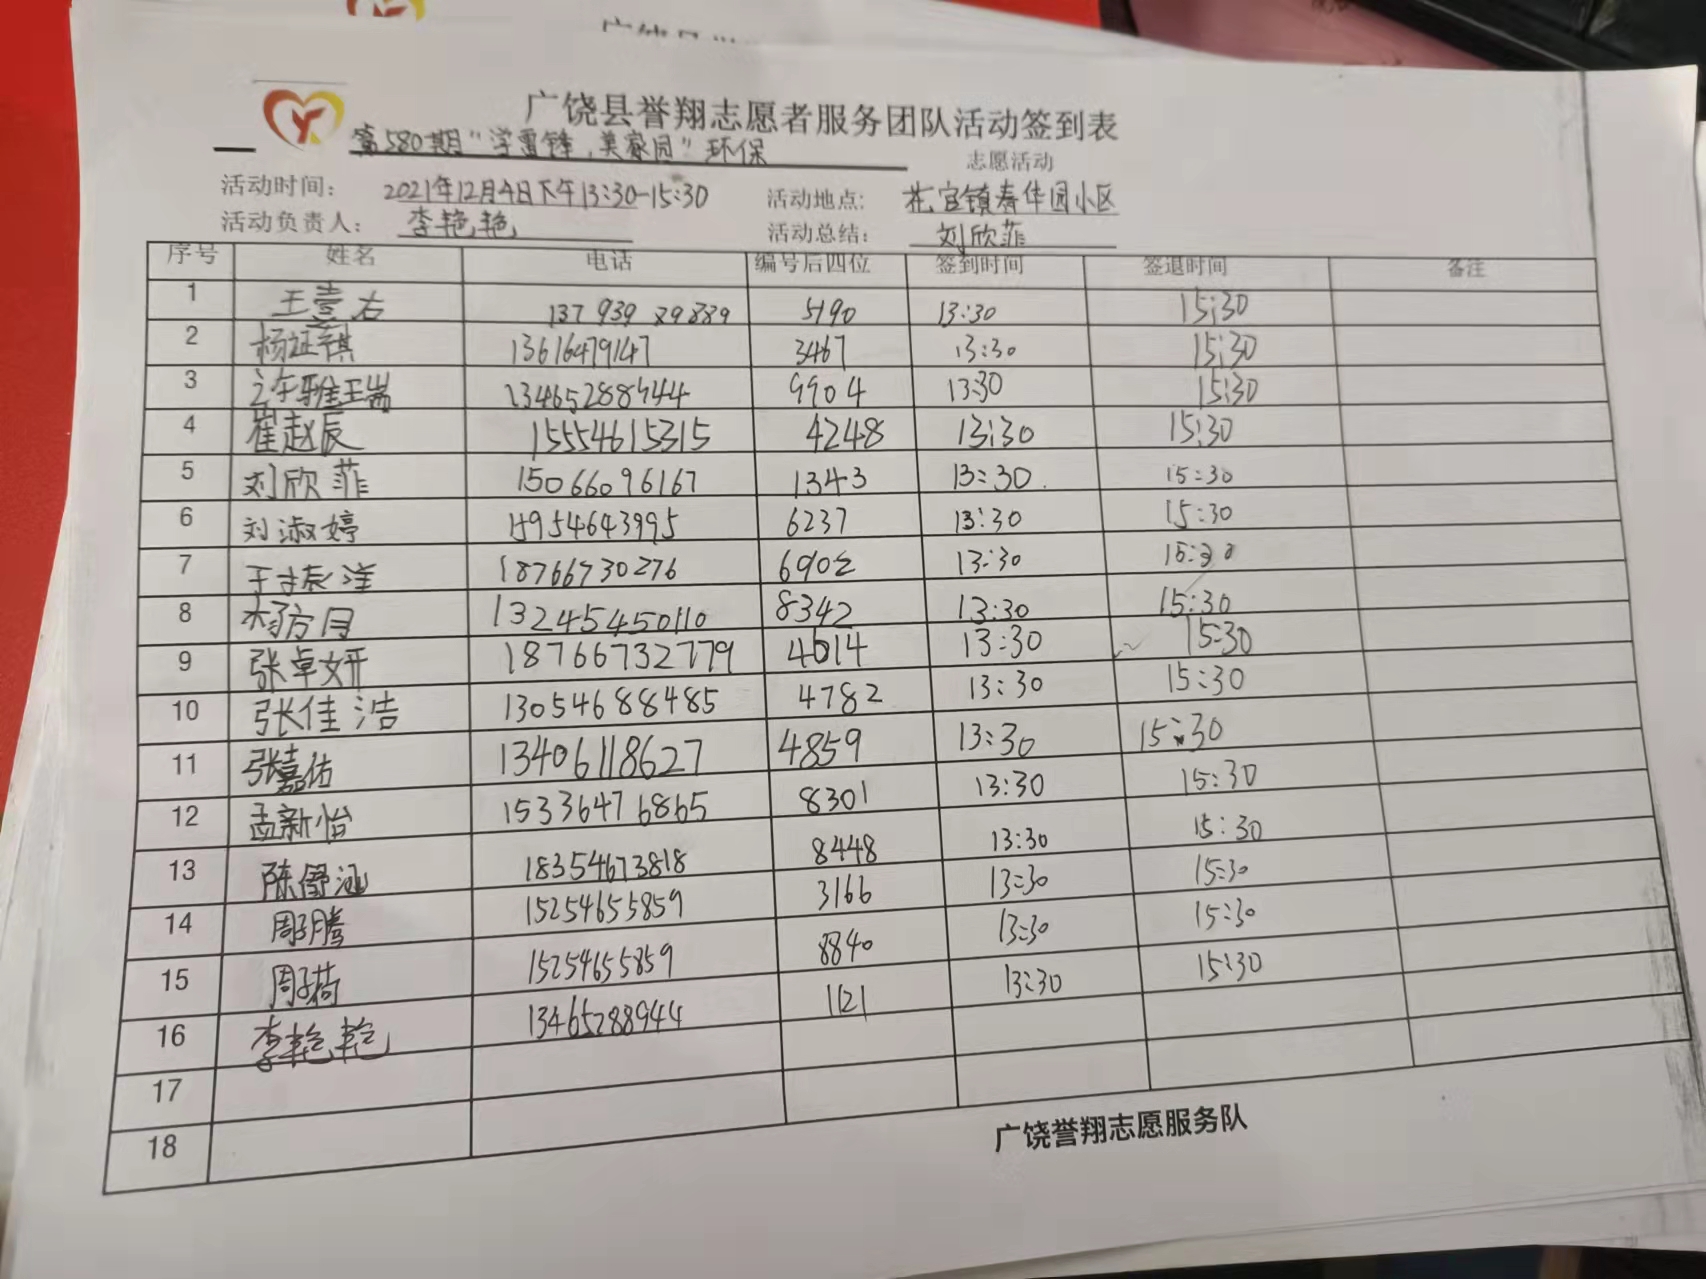 广饶县誉翔志愿者服务团队活动签到表
第580期"学雷锋,美家园"环保 志愿活动
活动时间: 2021年12月4日下午13:30-15:30 活动地点: 花官镇春华园小区
活动负责人: 李艳艳 活动总结: 刘欣菲
序号 姓名 电话 编号后四位 签到时间 签退时间 备注
1 王 右 137 939 29889 5190 13:30 15:30
2 杨证祺 13616479147 3467 13:30 15:30
3 13465288944 9904 13:30 15:30
4 崔赵辰 15554615315 4248 13:30 15:30
5 刘欣菲 15066096167 1343 13:30 15:30
6 刘淑婷 15954643995 6237 13:30 15:30
7 18766730276 6902 13:30 15:30
8 杨方同 13245450110 8342 13:30 15:30
9 张卓妍 18766732779 4614 13:30 15:30
10 张佳浩 13054688485 4782 13:30 15:30
11 张嘉佑 13406118627 4859 13:30 15:30
12 孟新怡 15336476865 8301 13:30 15:30
13 陈舒涵 18354673818 8448 13:30 15:30
14 周子腾 15254655859 3166 13:30 15:30
15 周子荷 15254655859 8840 13:30 15:30
16 李艳艳 13465288944 1121 13:30 15:30
17
18
广饶誉翔志愿服务队